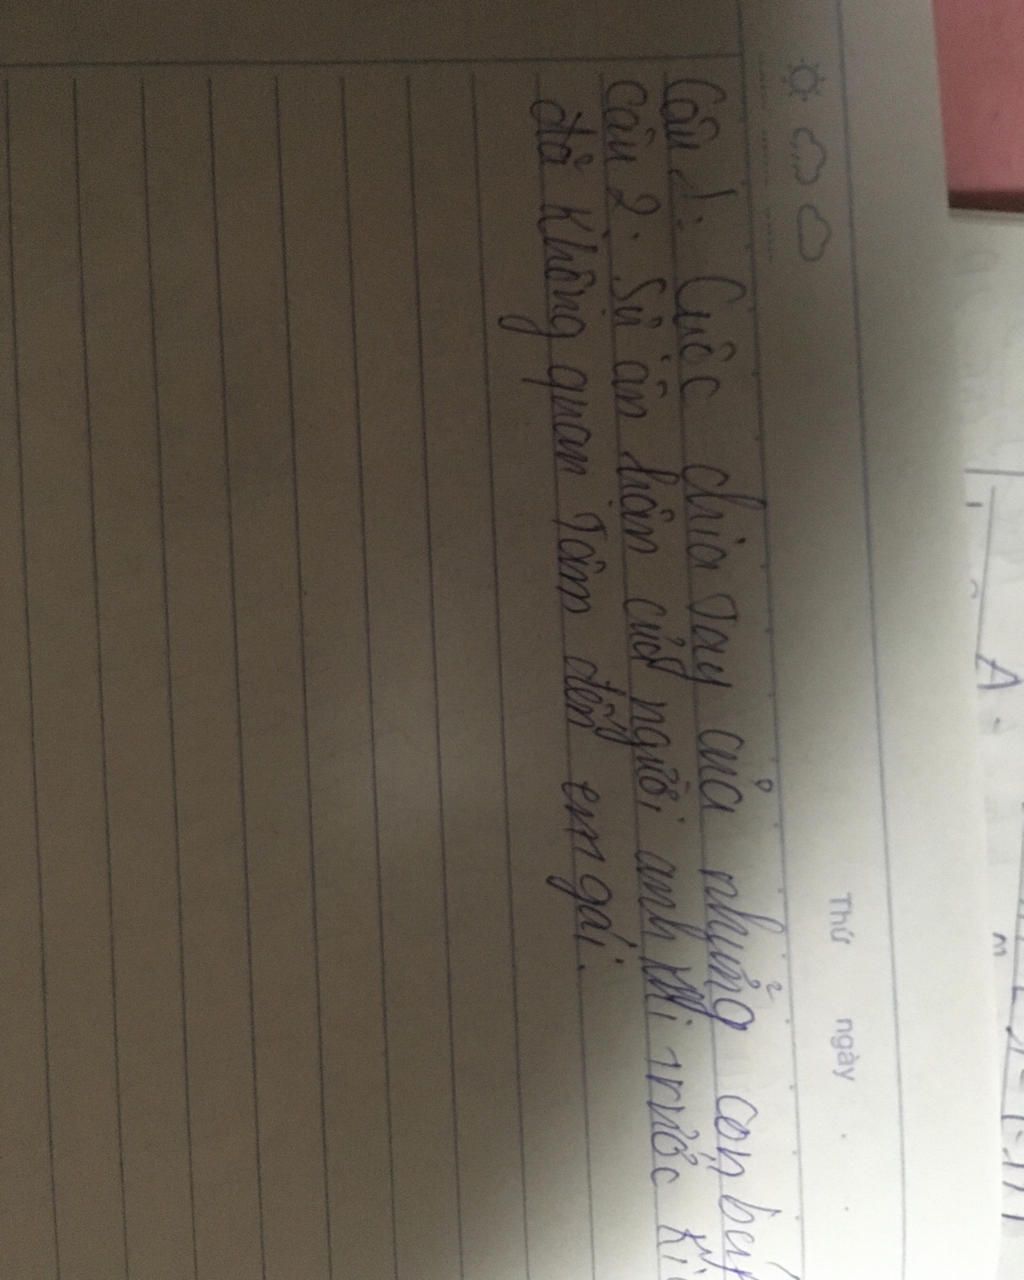 Thứ ngày
Câu 1: Cuộc chia tay của những con búp
Câu 2: Sự ân hận của người anh khi trước kia
đã không quan tâm đến em gái.
A